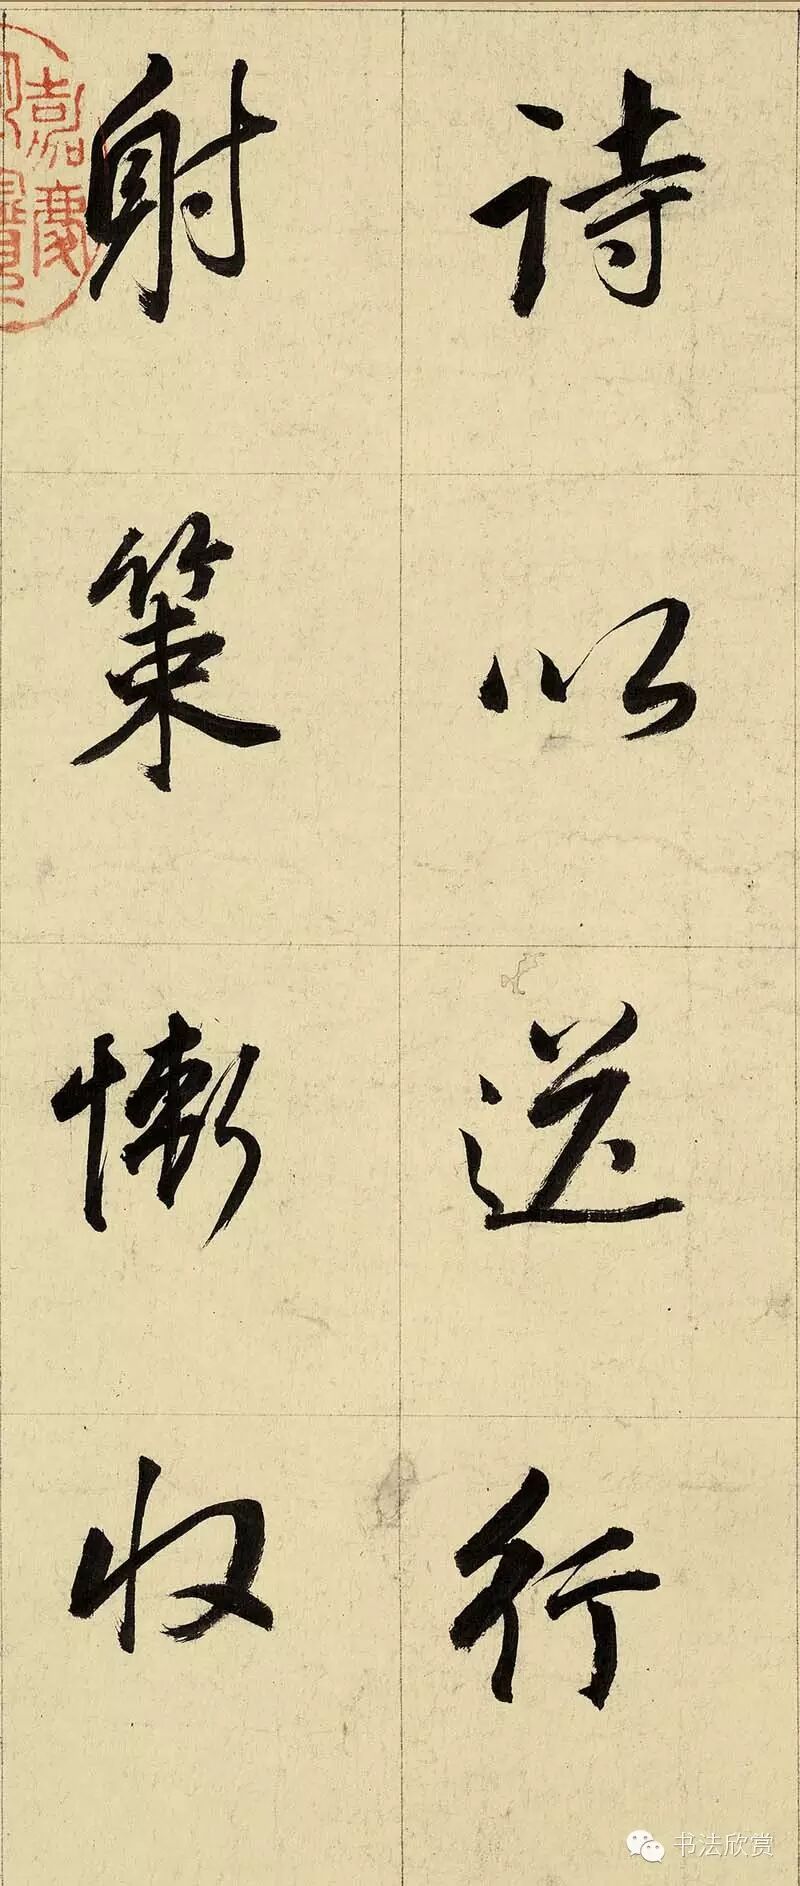 詩以送行
射策慚收
嘉慶
书法欣赏